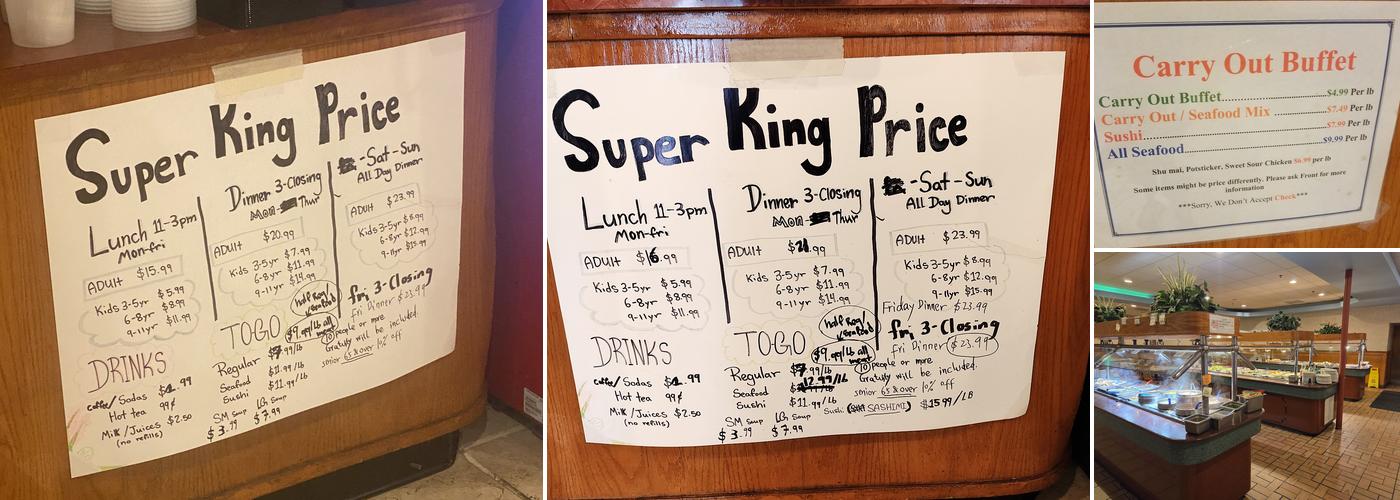 Super King Price
Lunch 11-3pm
Mon-fri
ADULT $15.99
Kids 3-5yr $5.99
6-8yr $8.99
9-11yr $11.99
DRINKS
coffee/Sodas $2.99
Hot tea 99¢
Milk/Juices $2.50
(no refills)
Dinner 3-Closing
Mon- Thur
ADULT $20.99
Kids 3-5yr $7.99
6-8yr $11.99
9-11yr $14.99
TOGO
half Reg/
seafood
$9.99/lb all
meat
Regular $7.99/Lb
Seafood $11.99/Lb
Sushi $11.99/Lb
SM Soup LG Soup
$3.99 $7.99
-Sat-Sun
All Day Dinner
ADULT $23.99
Kids 3-5yr $8.99
6-8yr $12.99
9-11yr $15.99
fri. 3-Closing
fri Dinner $23.99
10 people or more
Gratuity will be included.
senior 65 & over 10% off
Super King Price
Lunch 11-3pm
Mon-fri
ADULT $16.99
Kids 3-5yr $5.99
6-8yr $8.99
9-11yr $11.99
DRINKS
coffee/Sodas $2.99
Hot tea 99¢
Milk/Juices $2.50
(no refills)
Dinner 3-Closing
Mon- Thur
ADULT $21.99
Kids 3-5yr $7.99
6-8yr $11.99
9-11yr $14.99
TOGO
half Reg/
seafood
$9.99/lb all
meat
Regular $7.99/Lb
Seafood $12.99/Lb
Sushi $11.99/Lb
SM Soup LG Soup
$3.99 $7.99
-Sat-Sun
All Day Dinner
ADULT $23.99
Kids 3-5yr $8.99
6-8yr $12.99
9-11yr $15.99
Friday Dinner $23.99
fri. 3-Closing
fri Dinner $23.99
10 people or more
Gratuity will be included.
senior 65 & over 10% off
Sushi (SASHIMI) $15.99/LB
Carry Out Buffet
Carry Out Buffet $4.99 Per lb
Carry Out / Seafood Mix $7.49 Per lb
Sushi $7.99 Per lb
All Seafood $9.99 Per lb
Shu mai, Potsticker, Sweet Sour Chicken $6.99 per lb
Some items might be price differently. Please ask Front for more
information
***Sorry, We Don't Accept Check***